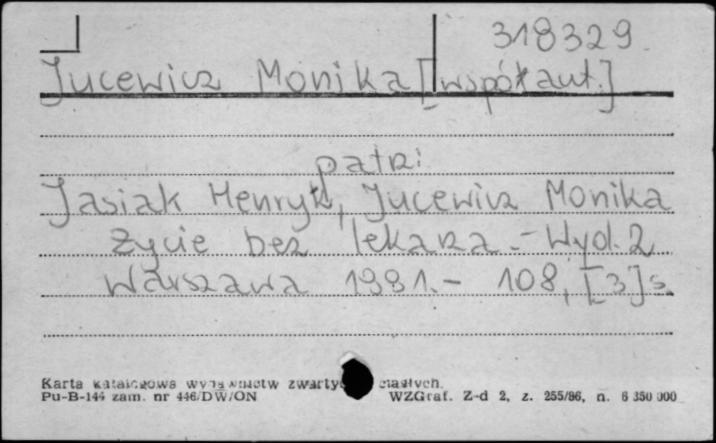 318329
Jucewicz Monika [współaut.]
patrz:
Jasiak Henryk, Jucewicz Monika
Życie bez lekarza. – Wyd. 2
Warszawa 1991. – 108, [3] s.
Karta katalogowa wydawnictw zwartych ciągłych.
Pu-B-144 zam. nr 446/DW/ON WZGraf. Z-d 2, z. 255/86, n. 6 350 000